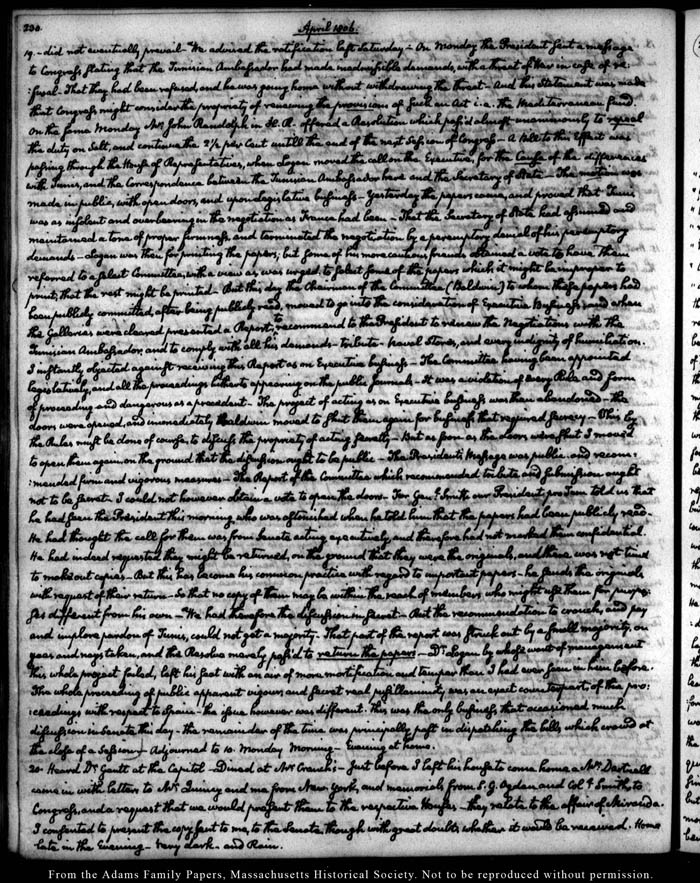 230.
April 1806.
19. - did not eventually prevail - We advised the ratification last Saturday - On Monday the President sent a message
to Congress, stating that the Tunisian Ambassador had made inadmissible demands, with a threat of War in case of re:
:fusal - That they had been refused, and he was going home without withdrawing the threat - And this Statement was made
that Congress might consider the propriety of renewing the provisions of such an Act i.e. the Mediterranean fund.
On the same Monday Mr. John Randolph in H. R. offered a Resolution which pass'd almost unanimously to repeal
the duty on Salt, and continue the 2 1/2 per Cent untill the end of the next Session of Congress - A bill to this effect was
passing through the House of Representatives, when Logan moved the call on the Executive, for the cause of the differences
with Tunis, and the Correspondence between the Tunisian Ambassador here and the Secretary of State - The motion was
made in public, with open doors, and upon legislative business - Yesterday the papers came, and proved that Tunis
was as insolent and overbearing in the negotiation as France had been - That the Secretary of State had assumed and
maintained a tone of proper firmness, and terminated the negotiation by a peremptory denial of his peremptory
demands - Logan was then for printing the papers; but some of his more cautious friends obtained a vote to have them
referred to a select Committee, with a view as was urged, to select some of the papers which it might be improper to
print, that the rest might be printed - But this day the Chairman of the Committee (Baldwin) to whom these papers had
been publicly committed, after being publicly read, moved to go into the consideration of Executive Business, and when
the Galleries were cleared presented a Report, to recommend to the President to renew the Negotiations with the
Tunisian Ambassador, and to comply with all his demands - tribute - Naval Stores, and every indignity of humiliation.
I instantly objected against receiving this Report as on Executive business - The Committee having been appointed
legislatively, and all the proceedings hitherto appearing on the public Journals - It was a violation of every Rule and form
of proceeding and dangerous as a precedent - The project of acting as on Executive business was then abandoned - the
doors were opened, and immediately Baldwin moved to shut them again for business that required secrecy - This by
the Rules must be done of course, to discuss the propriety of acting secretly - But as soon as the doors were shut I moved
to open them again on the ground that the discussion ought to be public - The President's Message was public, and recom:
:mended firm and vigorous measures - The Report of the Committee which recommended tribute and submission ought
not to be secret - I could not however obtain a vote to open the doors - For Genl. Smith our President pro Tem told us that
he had seen the President this morning, who was astonished when he told him that the papers had been publicly read -
He had thought the call for them was from Senate acting executively, and therefore had not marked them confidential.
He had indeed requested they might be returned, on the ground that they were the originals, and there was not time
to make out copies - But this has become his common practice with regard to important papers - he sends the originals
with request of their return - So that no copy of them may be within the reach of members who might use them for purpo:
ses different from his own - We had therefore the discussion in secret - But the recommendation to crouch, and pay
and implore pardon of Tunis, could not get a majority - That part of the report was struck out by a small majority, on
yeas and nays taken, and the Resolve merely pass'd to return the papers - Dr. Logan by whose want of management
this whole project failed, left his seat with an air of more mortification and temper than I had ever seen in him before.
The whole proceeding of public apparent vigour, and secret real pusillanimity, was an exact counterpart, of the pro:
:ceedings with respect to Spain - the issue however was different. This was the only business, that occasioned much
discussion in Senate this day - the remainder of the time was principally past in dispatching the bills, which crowd at
the close of a Session - Adjourned to 10. Monday Morning - Evening at home.
20. Heard Dr. Gantt at the Capitol - Dined at Mr. Cranch's - Just before I left his house to come home a Mr.
came in with letters to Mr. Quincy and me from New York, and memorials from S. G. Ogden and Coll. Smith, to
Congress, and a request that we would present them to the respective Houses - they relate to the affair of Miranda.
I consented to present the copy sent to me, to the Senate, though with great doubts whether it would be received. Home
late in the Evening - Very dark - and Rain.
From the Adams Family Papers, Massachusetts Historical Society. Not to be reproduced without permission.